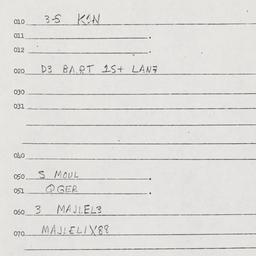 010 3-5 KON
011 .
012 .
020 D3 BART 1St LAN7
030
031
040
050 S MOUL .
051 QGER .
060 3 MAJLEL3
070 MAJLELIX'89